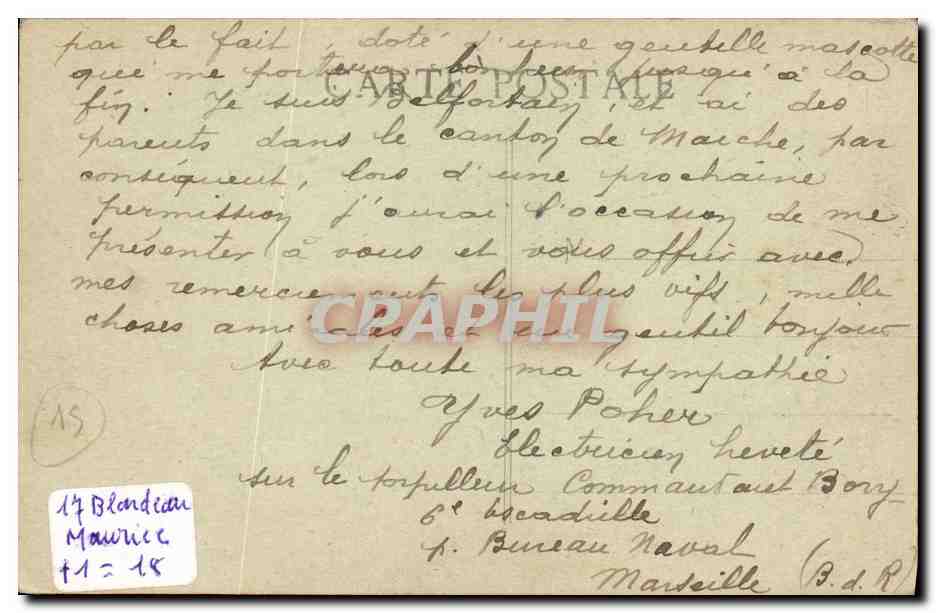 par le fait, doté d'une gentille mascotte
qui me portera bonheur jusqu'à la
CARTE POSTALE
fin. Je suis Belfortain, et ai des
parents dans le canton de Maiche, par
conséquent, lors d'une prochaine
permission j'aurai l'occasion de me
présenter à vous et vous offrir avec
mes remerciements les plus vifs, mille
choses amicales et un gentil bonjour
CPAPHIL
Avec toute ma sympathie
Yves Poher
Electricien breveté
sur le torpilleur Commandant Bory
6e Escadrille
p. Bureau Naval
Marseille (B. d. R)
15
17 Blondeau
Maurice
+1 = 18